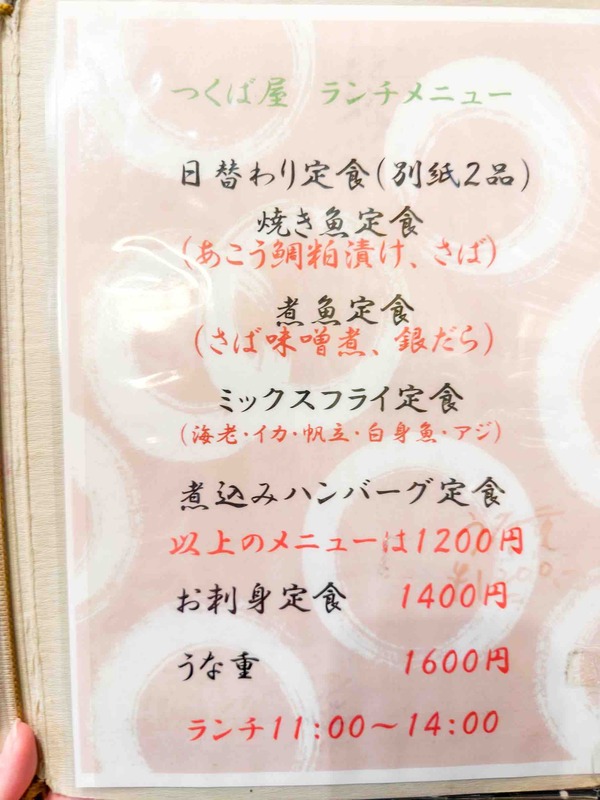 つくば屋 ランチメニュー
日替わり定食(別紙2品)
焼き魚定食
(あこう鯛粕漬け、さば)
煮魚定食
(さば味噌煮、銀だら)
ミックスフライ定食
(海老・イカ・帆立・白身魚・アジ)
煮込みハンバーグ定食
以上のメニューは1200円
お刺身定食 1400円
うな重 1600円
ランチ11:00～14:00